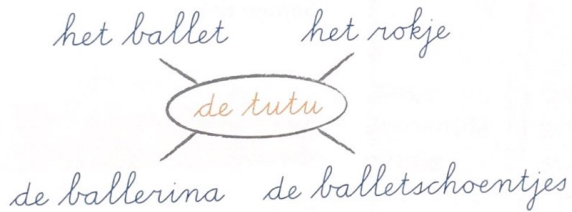 het ballet
het rokje
de tutu
de ballerina
de balletschoentjes